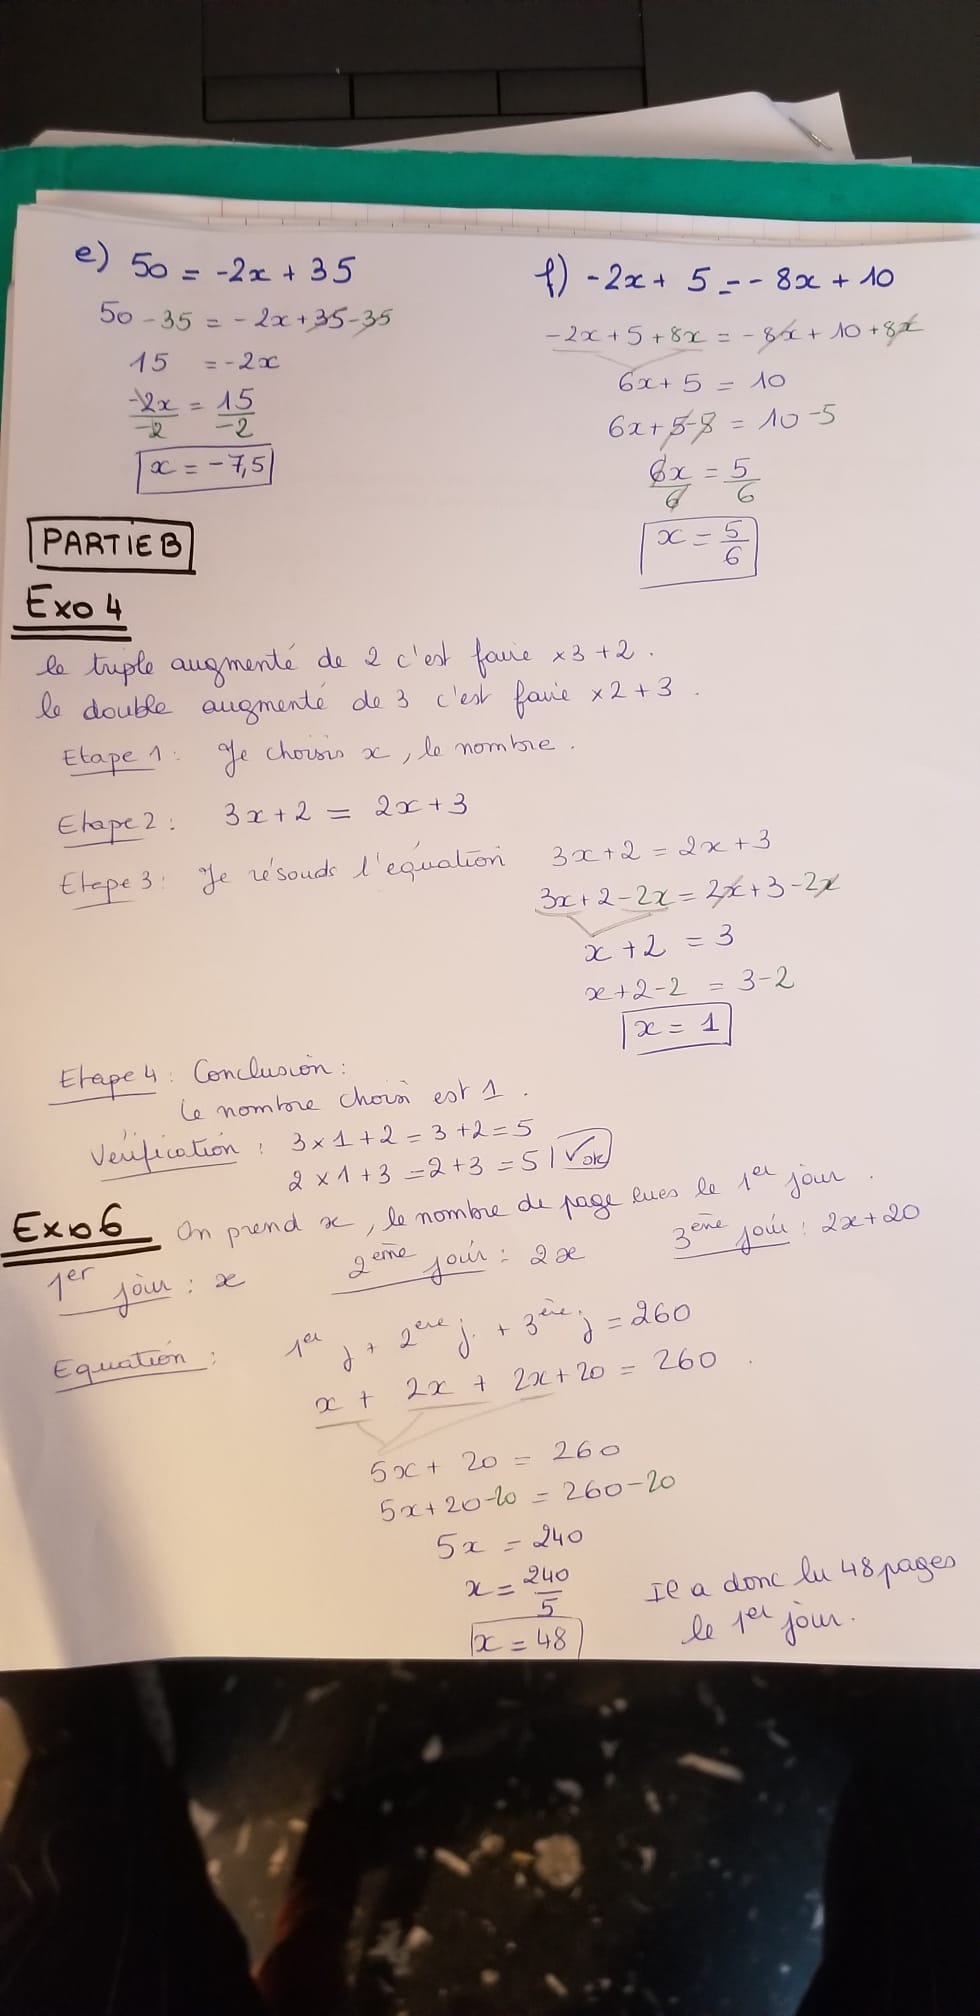 e) 50 = -2x + 35
50 - 35 = -2x + 35 - 35
15 = -2x
-2x/-2 = 15/-2
x = -7,5
f) -2x + 5 = - 8x + 10
-2x + 5 + 8x = - 8x + 10 + 8x
6x + 5 = 10
6x + 5 - 5 = 10 - 5
6x/6 = 5/6
x = 5/6
PARTIE B
Exo 4
le triple augmenté de 2 c'est faire x3 + 2.
le double augmenté de 3 c'est faire x2 + 3.
Etape 1 : Je choisis x, le nombre.
Etape 2 : 3x + 2 = 2x + 3
Etape 3 : Je résouds l'équation 3x + 2 = 2x + 3
3x + 2 - 2x = 2x + 3 - 2x
x + 2 = 3
x + 2 - 2 = 3 - 2
x = 1
Etape 4 : Conclusion :
le nombre choisi est 1.
Vérification : 3 x 1 + 2 = 3 + 2 = 5
2 x 1 + 3 = 2 + 3 = 5 | √ ok
Exo 6 On prend x, le nombre de page lues le 1er jour.
1er jour : x 2ème jour : 2x 3ème jour : 2x + 20
Equation : 1er j + 2ere j. + 3ère j = 260
x + 2x + 2x + 20 = 260.
5x + 20 = 260
5x + 20 - 20 = 260 - 20
5x = 240
x = 240/5
x = 48
Il a donc lu 48 pages
le 1er jour.